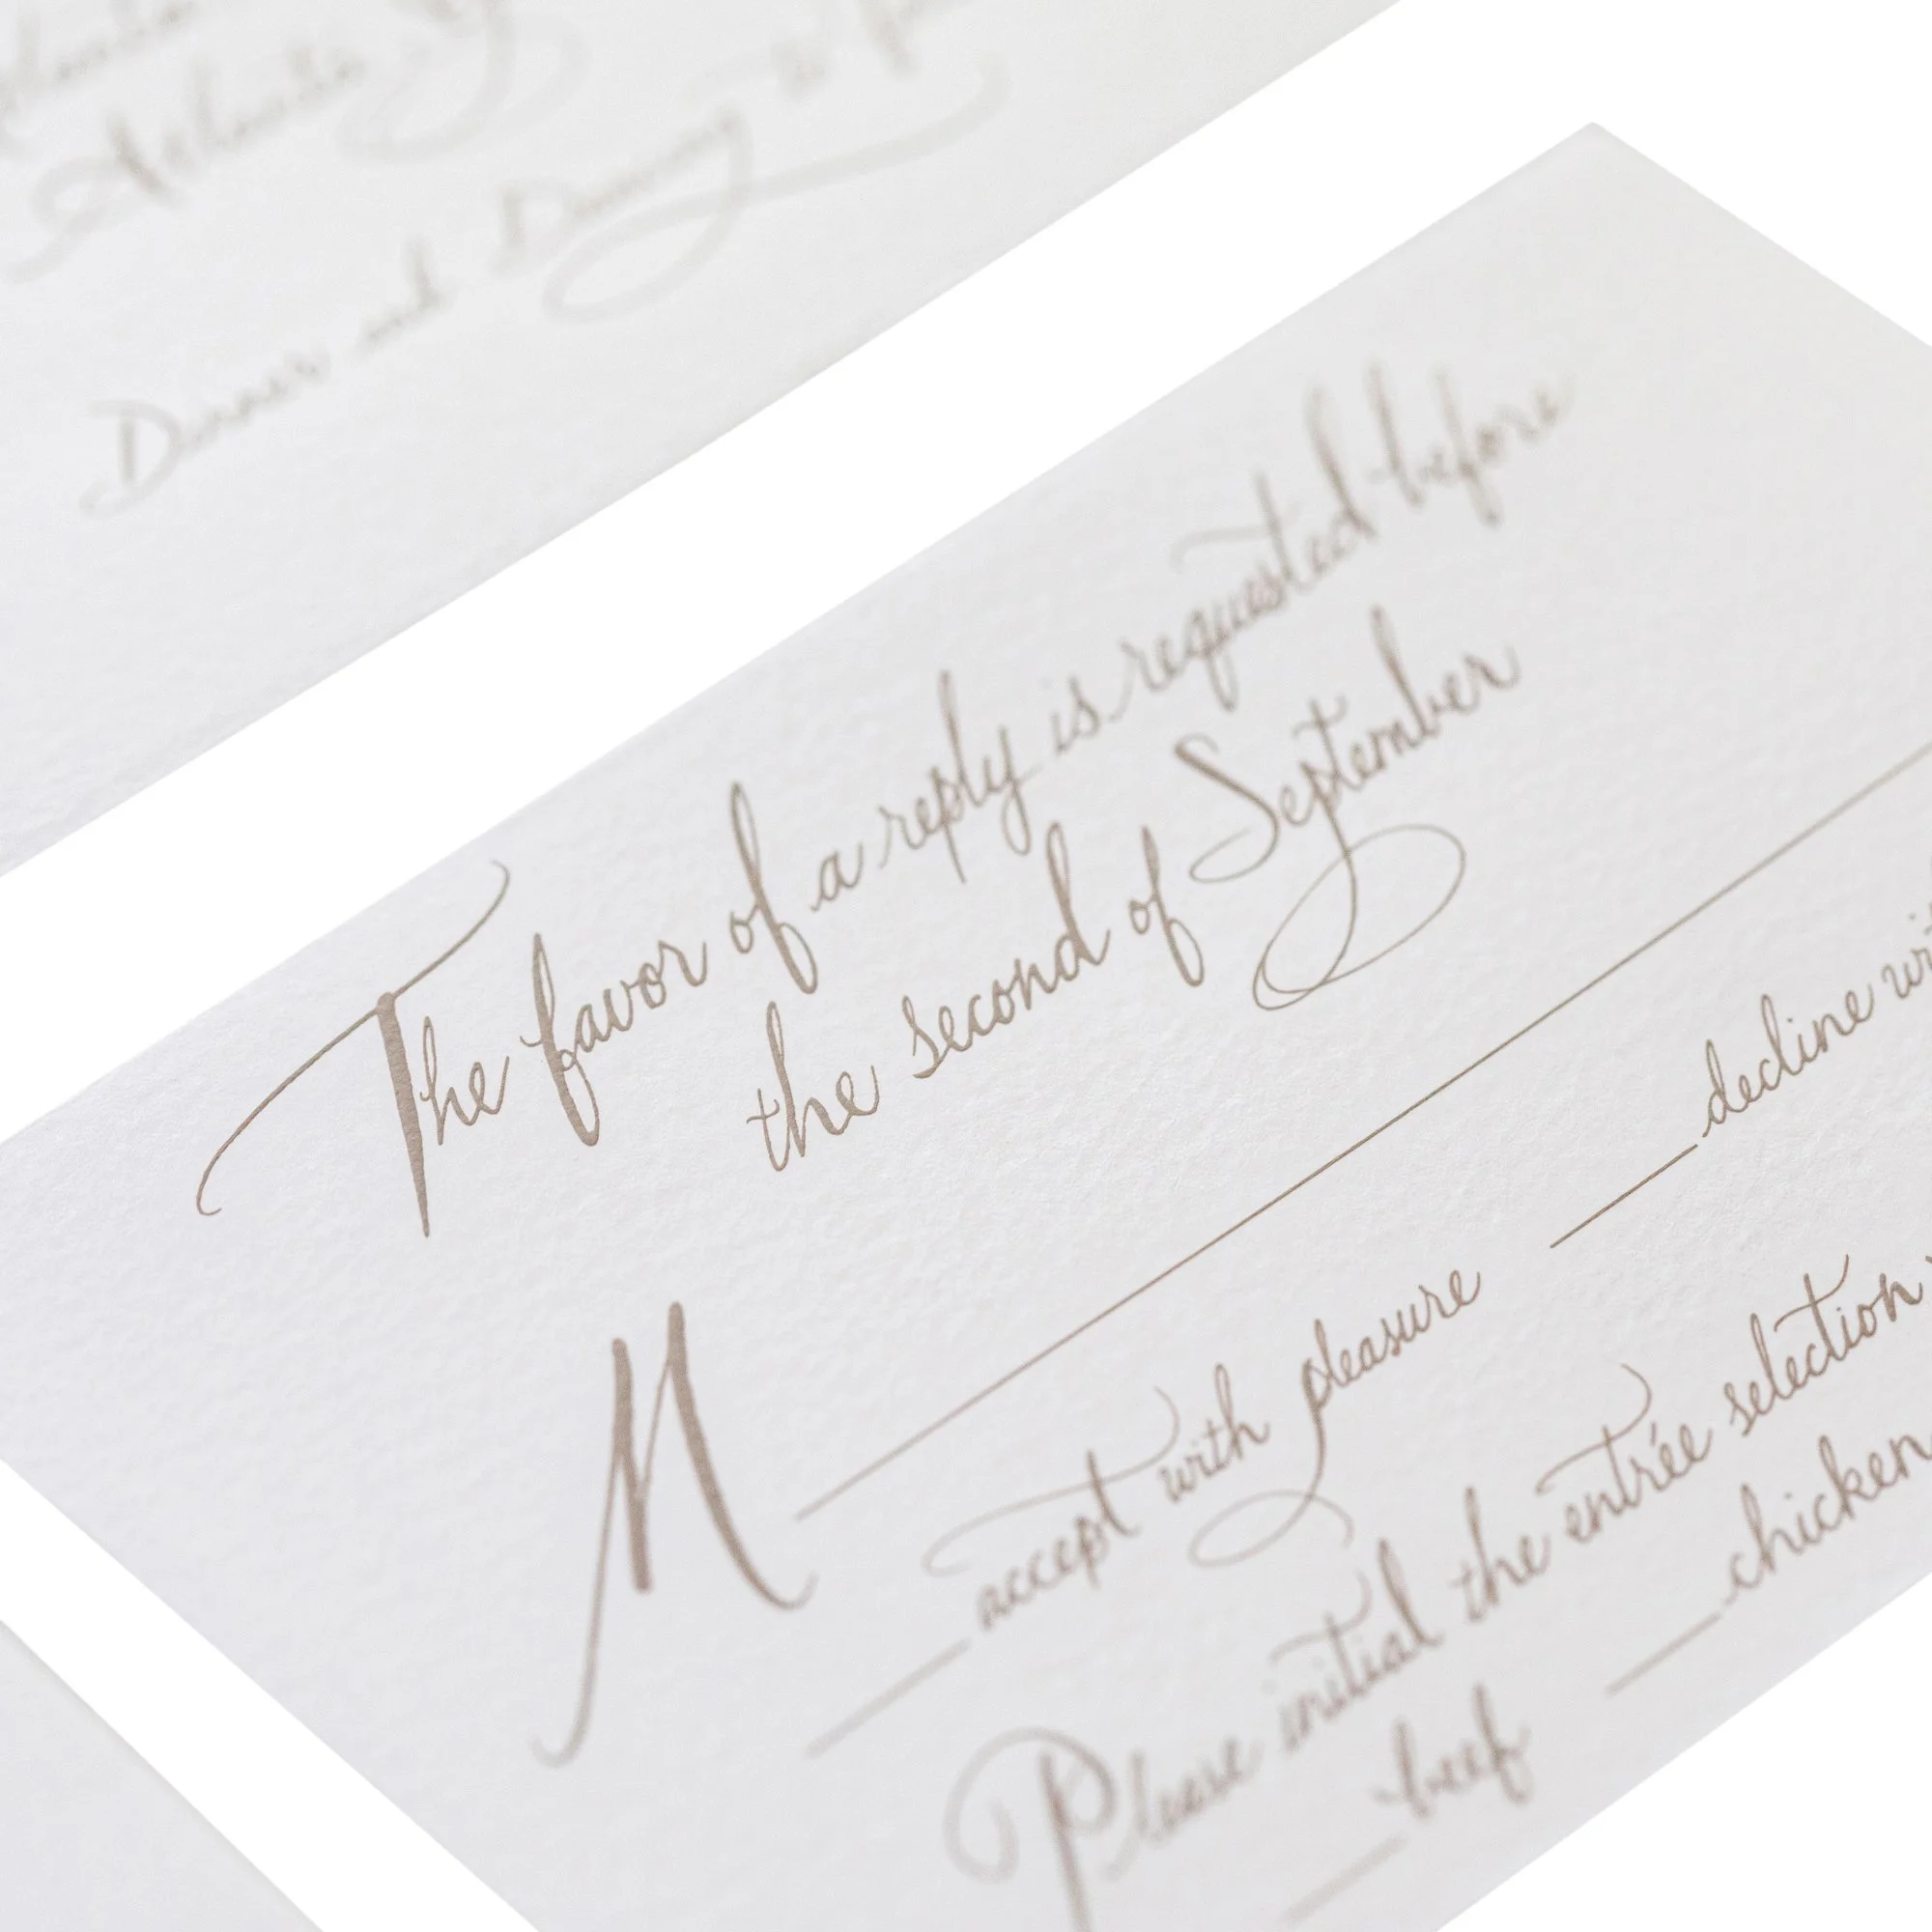 Atlanta
Dinner and Dancing to
The favor of a reply is requested before
the second of September
M
accept with pleasure decline
Please initial the entrée selection
beef chicken